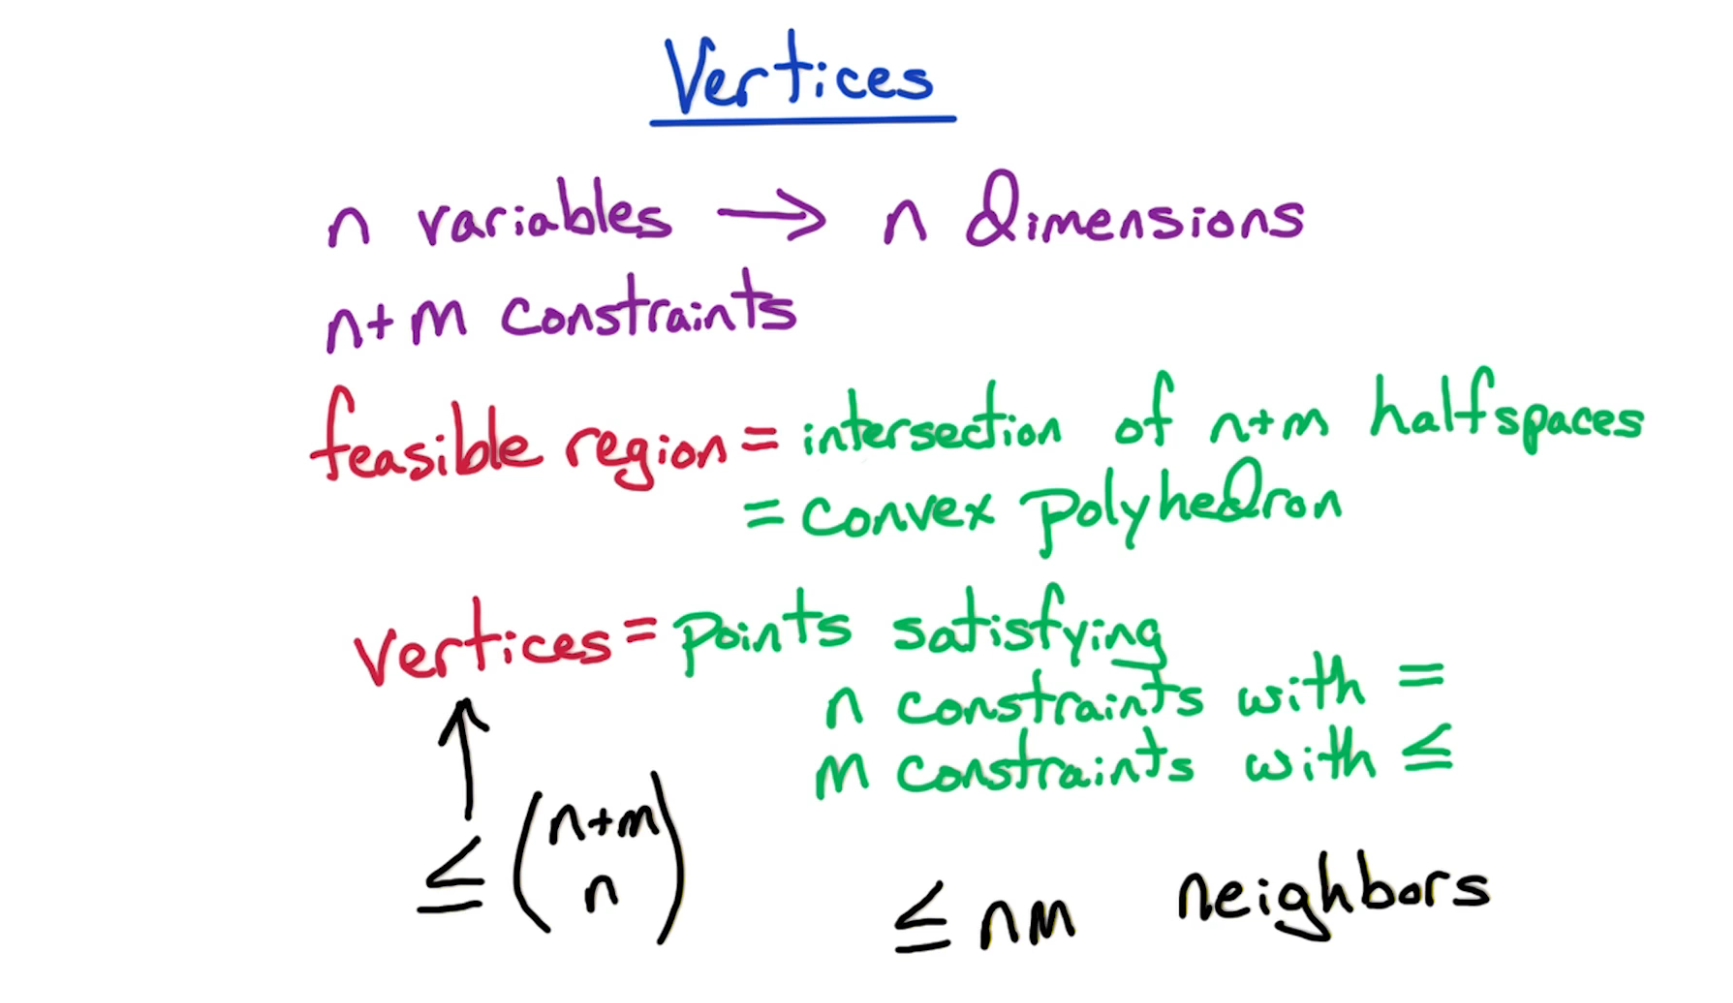 Vertices
n variables → n dimensions
n+m constraints
feasible region = intersection of n+m halfspaces
= convex polyhedron
vertices = points satisfying
n constraints with =
m constraints with ≤
≤ (n+m
n)
≤ nm neighbors